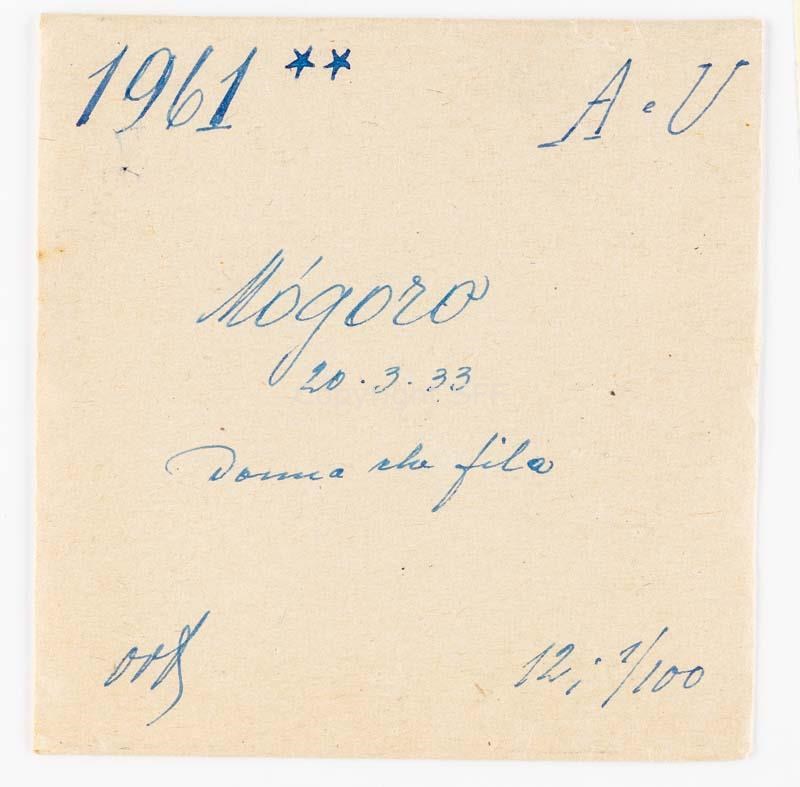 1961 ** A e U
Mógoro
20.3.33
Donna che fila
12; 1/100